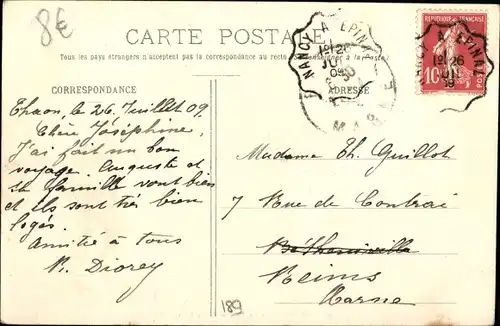 8€
CARTE POSTALE
Tous les pays étrangers n'acceptent pas la correspondance au recto
à la Poste)
CORRESPONDANCE
ADRESSE
Thaon, le 26 Juillet 09
Chère Joséphine,
J'ai fait un bon
voyage. Auguste et
sa famille sont bien
et ils sont très bien
logés.
Amitié à tous
Madame Th. Guillot
7 Rue de Contrai
Bétheniville
Reims
Marne
189
NANCY A EPINAL
1º 26
09
MARNE
REPUBLIQUE FRANÇAISE
10
NANCY A EPINAL
1º 26